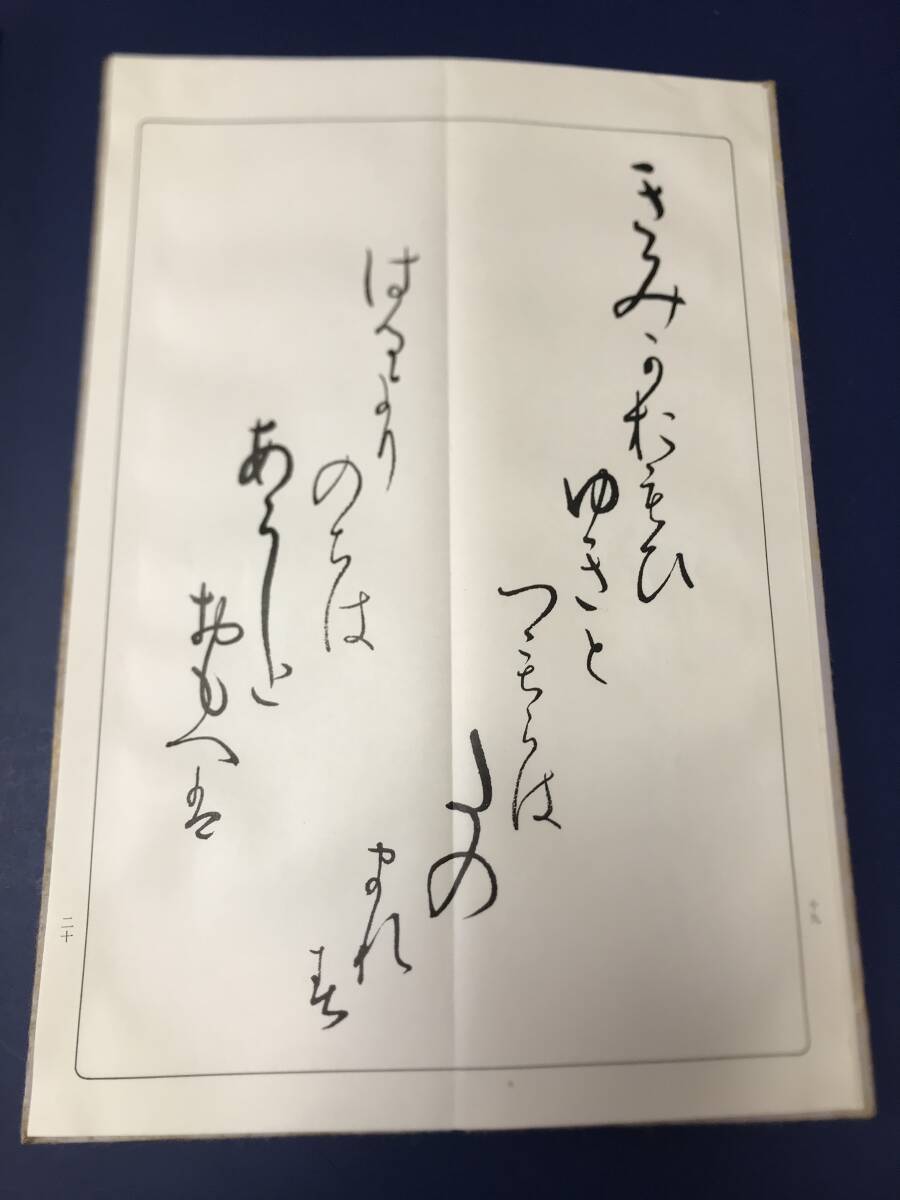 きみかおもひ
ゆきと
つもらは
たの
まれす
はるより
のちは
あらしと
おもへは
十九
二十